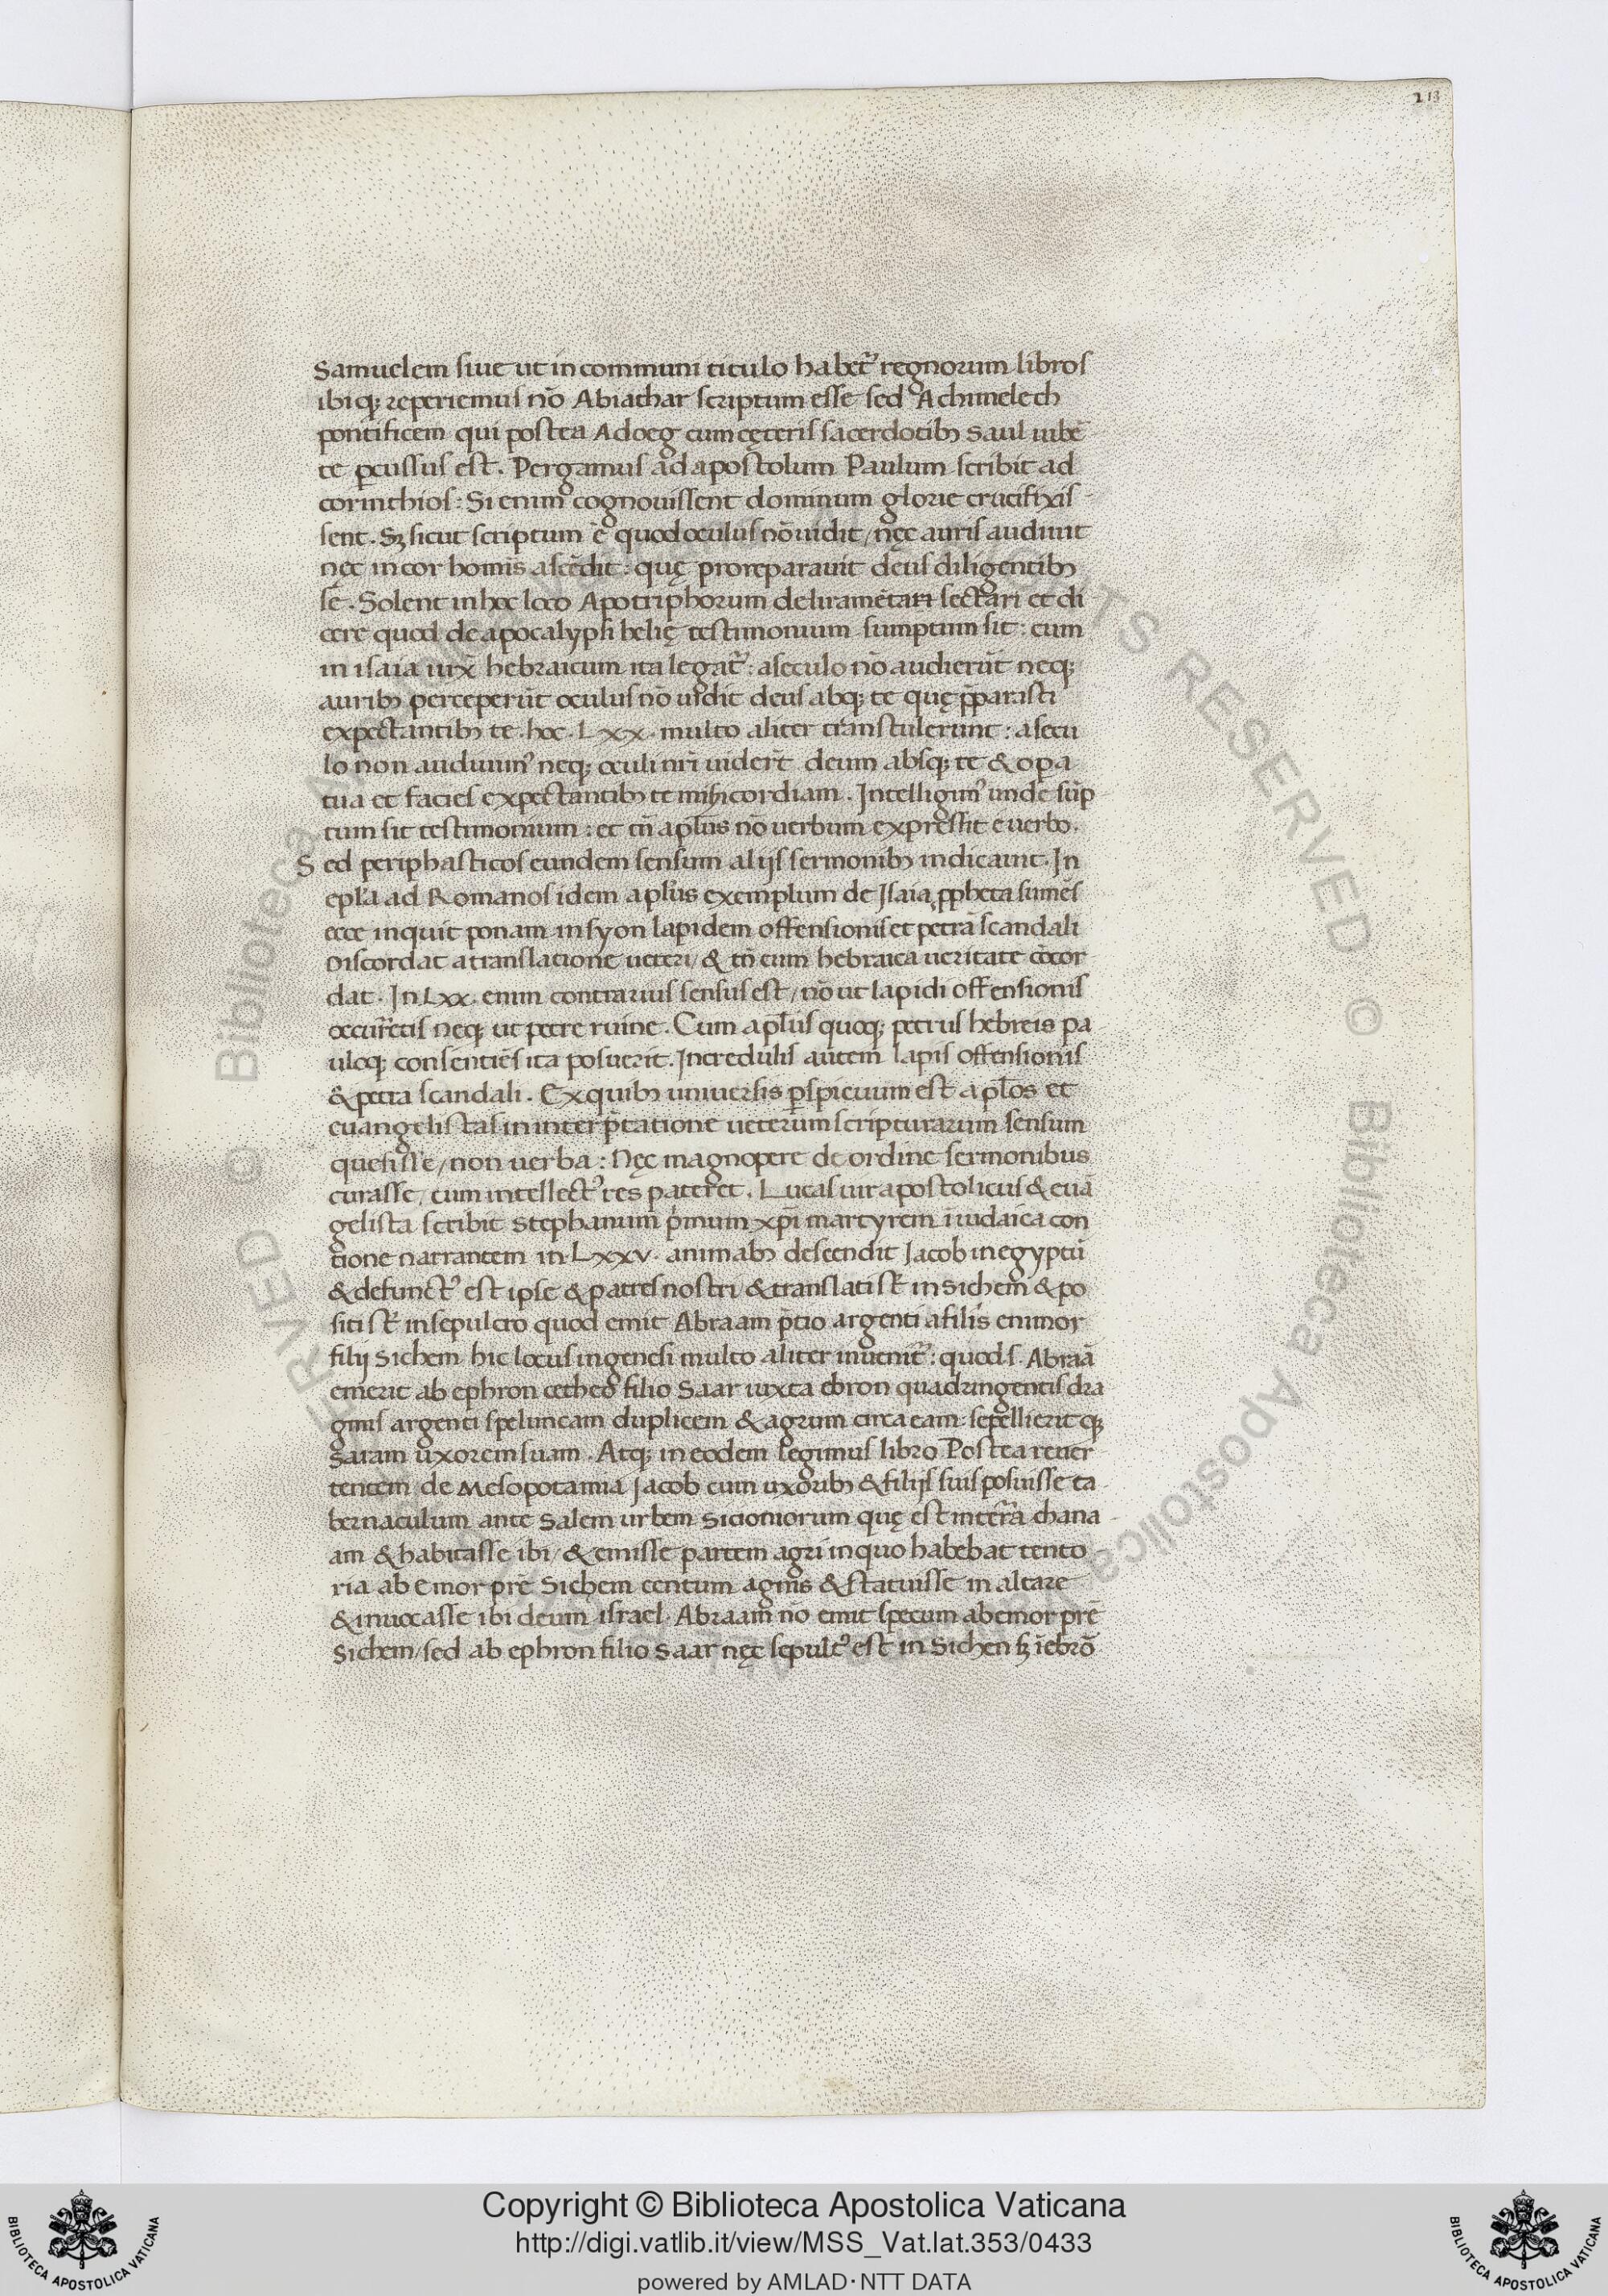 213
Samuelem siue ut in communi titulo habet᷑ regnorum libros
ibiq; reperiemus nō Abiathar scriptum esse sed Achimelech
pontificem qui postea Adoeg cum cęteris sacerdotibꝫ Saul iubē
te ꝑcussus est. Pergamus ad apostolum Paulum scribit ad
corinthios: Si enim cognouissent dominum glorie crucifixis
sent. Sꝫ sicut scriptum ē quod oculus nō uidit / nęc auris audiuit
nęc in cor homīs ascēdit: quę proreparauit deus diligentibꝫ
se. Solent in hoc loco Apocriphorum deliramētan sectari et di
cere quod de apocalypsi helię testimonium sumptum sit: cum
in isaia iuxͣ hebraicum ita legat᷑: a seculo nō audierūt neq;
auribꝫ perceperūt oculus nō uidit deus abq; te quę p̄parasti
expectantibꝫ te. hoc. Lxx. multo aliter transtulerunt: a secu
lo non audiuimꝰ neq; oculi nrī uiderūt deum absq; te & oꝑa
tua et facies expectantibꝫ te miscͥordiam. Intelligimꝰ unde sūp
tum sit testimonium: et tn̄ apl̄us nō uerbum expressit e uerbo.
Sed periphasticos eundem sensum alijs sermonibꝫ indicauit. In
epl̄a ad Romanos idem apl̄us exemplum de Isaia ꝓpheta sumēs
ecce inquit ponam in syon lapidem offensionis et petrā scandali
Discordat a translatione ueteri / & tn̄ cum hebraica ueritate cōcor
dat. In Lxx. enim contrarius sensus est / nō ut lapidi offensionis
occurretis neq; ut petre ruine. Cum apl̄us quoq; petrus hebreis pa
uloq; consentiēs ita posuerit. Incredulis autem lapis offensionis
& petra scandali. Ex quibꝫ uniuersis ꝑspicuum est apl̄os et
euangelistas in interp̄tatione ueterum scripturarum sensum
quesisse / non uerba: Nęc magnopere de ordine sermonibus
curasse / cum intellectꝰ res pateret. Lucas uir apostolicus & euā
gelista scribit Stephanum pͥmum xp̄i martyrem ī iudaica con
tione narrantem in. Lxxv. animabꝫ descendit Jacob in egyptū
& defunctꝰ est ipse & patres nostri / & translati st̄ in Sichem & po
siti st̄ in sepulcro quod emit Abraam p̄tio argenti a filiis emmor
filij Sichem hic locus in genesi multo aliter inuenit᷑: quod s. Abraā
emerit ab ephron cetheo filio Saar iuxta ebron quadringentis dra
gmis argenti speluncam duplicem & agrum circa eam sepellieritq;
saram uxorem suam. Atq; in eodem legimus libro Postea reuer
tentem de Mesopotamia Jacob cum uxoribꝫ & filijs suis posuisse ta
bernaculum ante Salem urbem sicioniorum quę est in terra chana
am & habitasse ibi / & emisse partem agri in quo habebat tento
ria ab Emor prē Sichem centum agnis & statuisse in altare
& inuocasse ibi deum israel. Abraam nō emit specum ab emor prē
Sichem / sed ab ephron filio Saar nęc sepultꝰ est in Sichen sꝫ ī ebrō
Copyright © Biblioteca Apostolica Vaticana
http://digi.vatlib.it/view/MSS_Vat.lat.353/0433
powered by AMLAD·NTT DATA
BIBLIOTECA APOSTOLICA VATICANA
BIBLIOTECA APOSTOLICA VATICANA